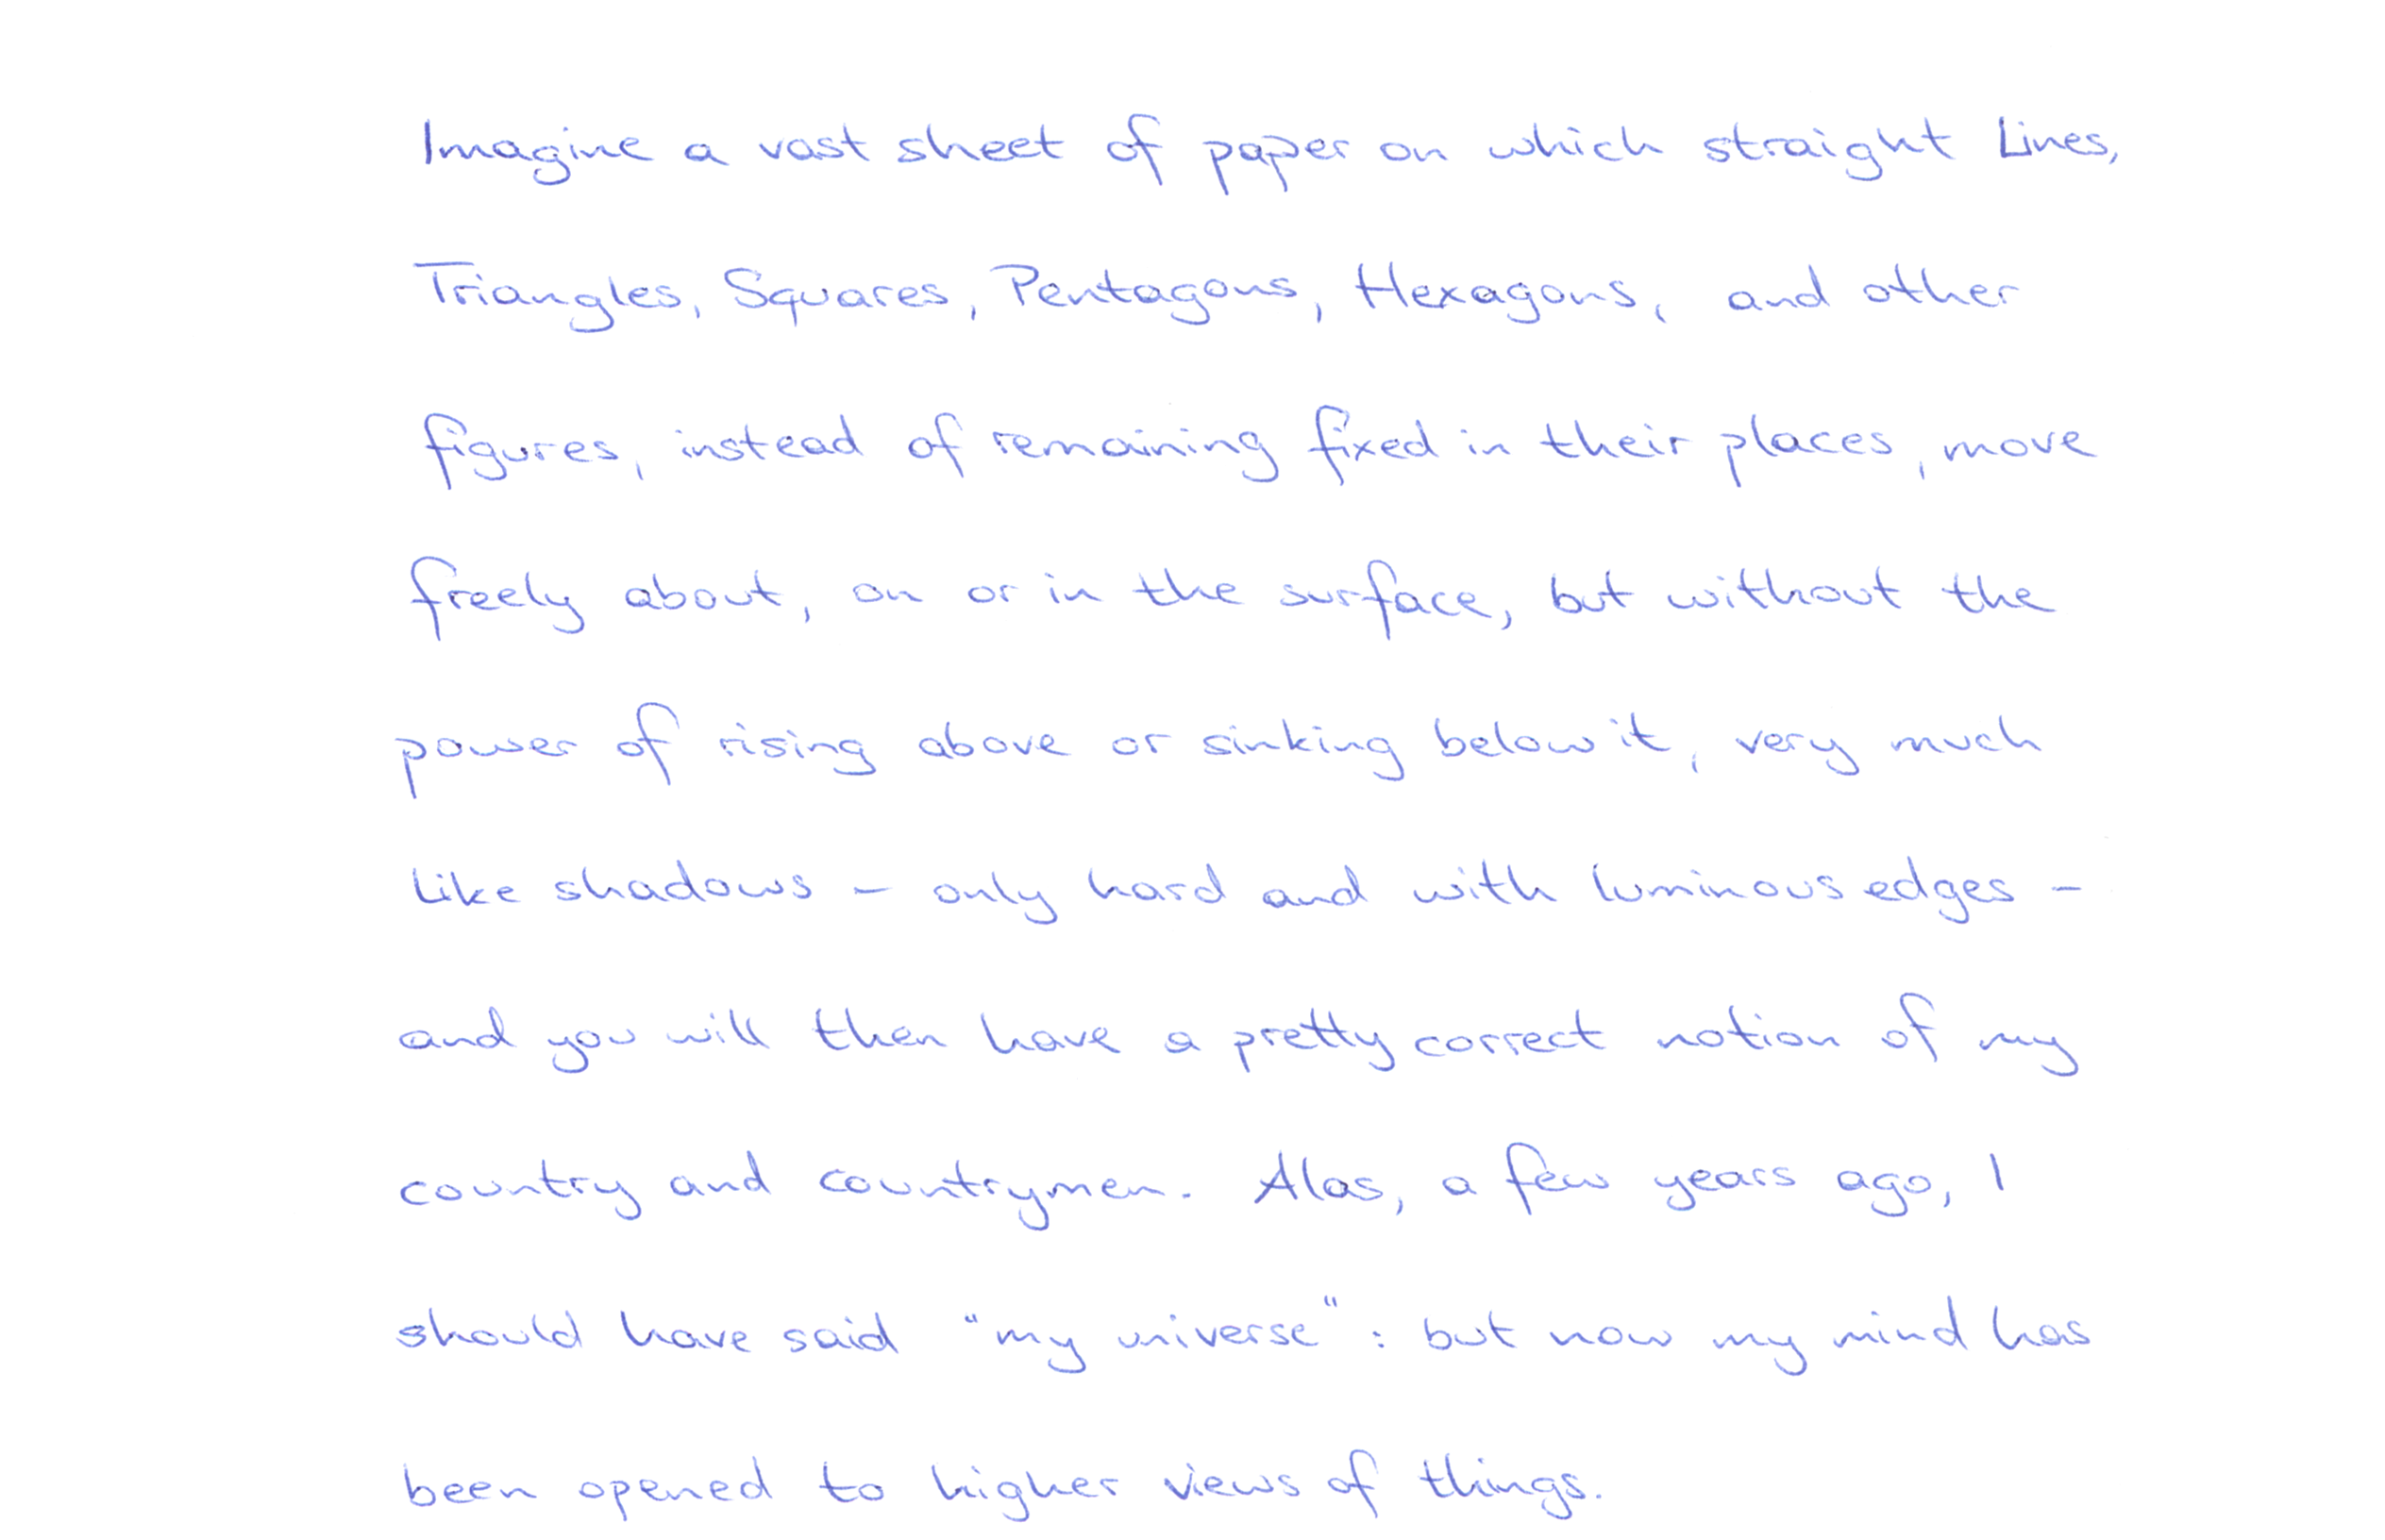 Imagine a vast sheet of paper on which straight Lines,
Triangles, Squares, Pentagons, Hexagons, and other
figures, instead of remaining fixed in their places, move
freely about, on or in the surface, but without the
power of rising above or sinking below it, very much
like shadows - only hard and with luminous edges -
and you will then have a pretty correct notion of my
country and countrymen. Alas, a few years ago, I
should have said "my universe": but now my mind has
been opened to higher views of things.